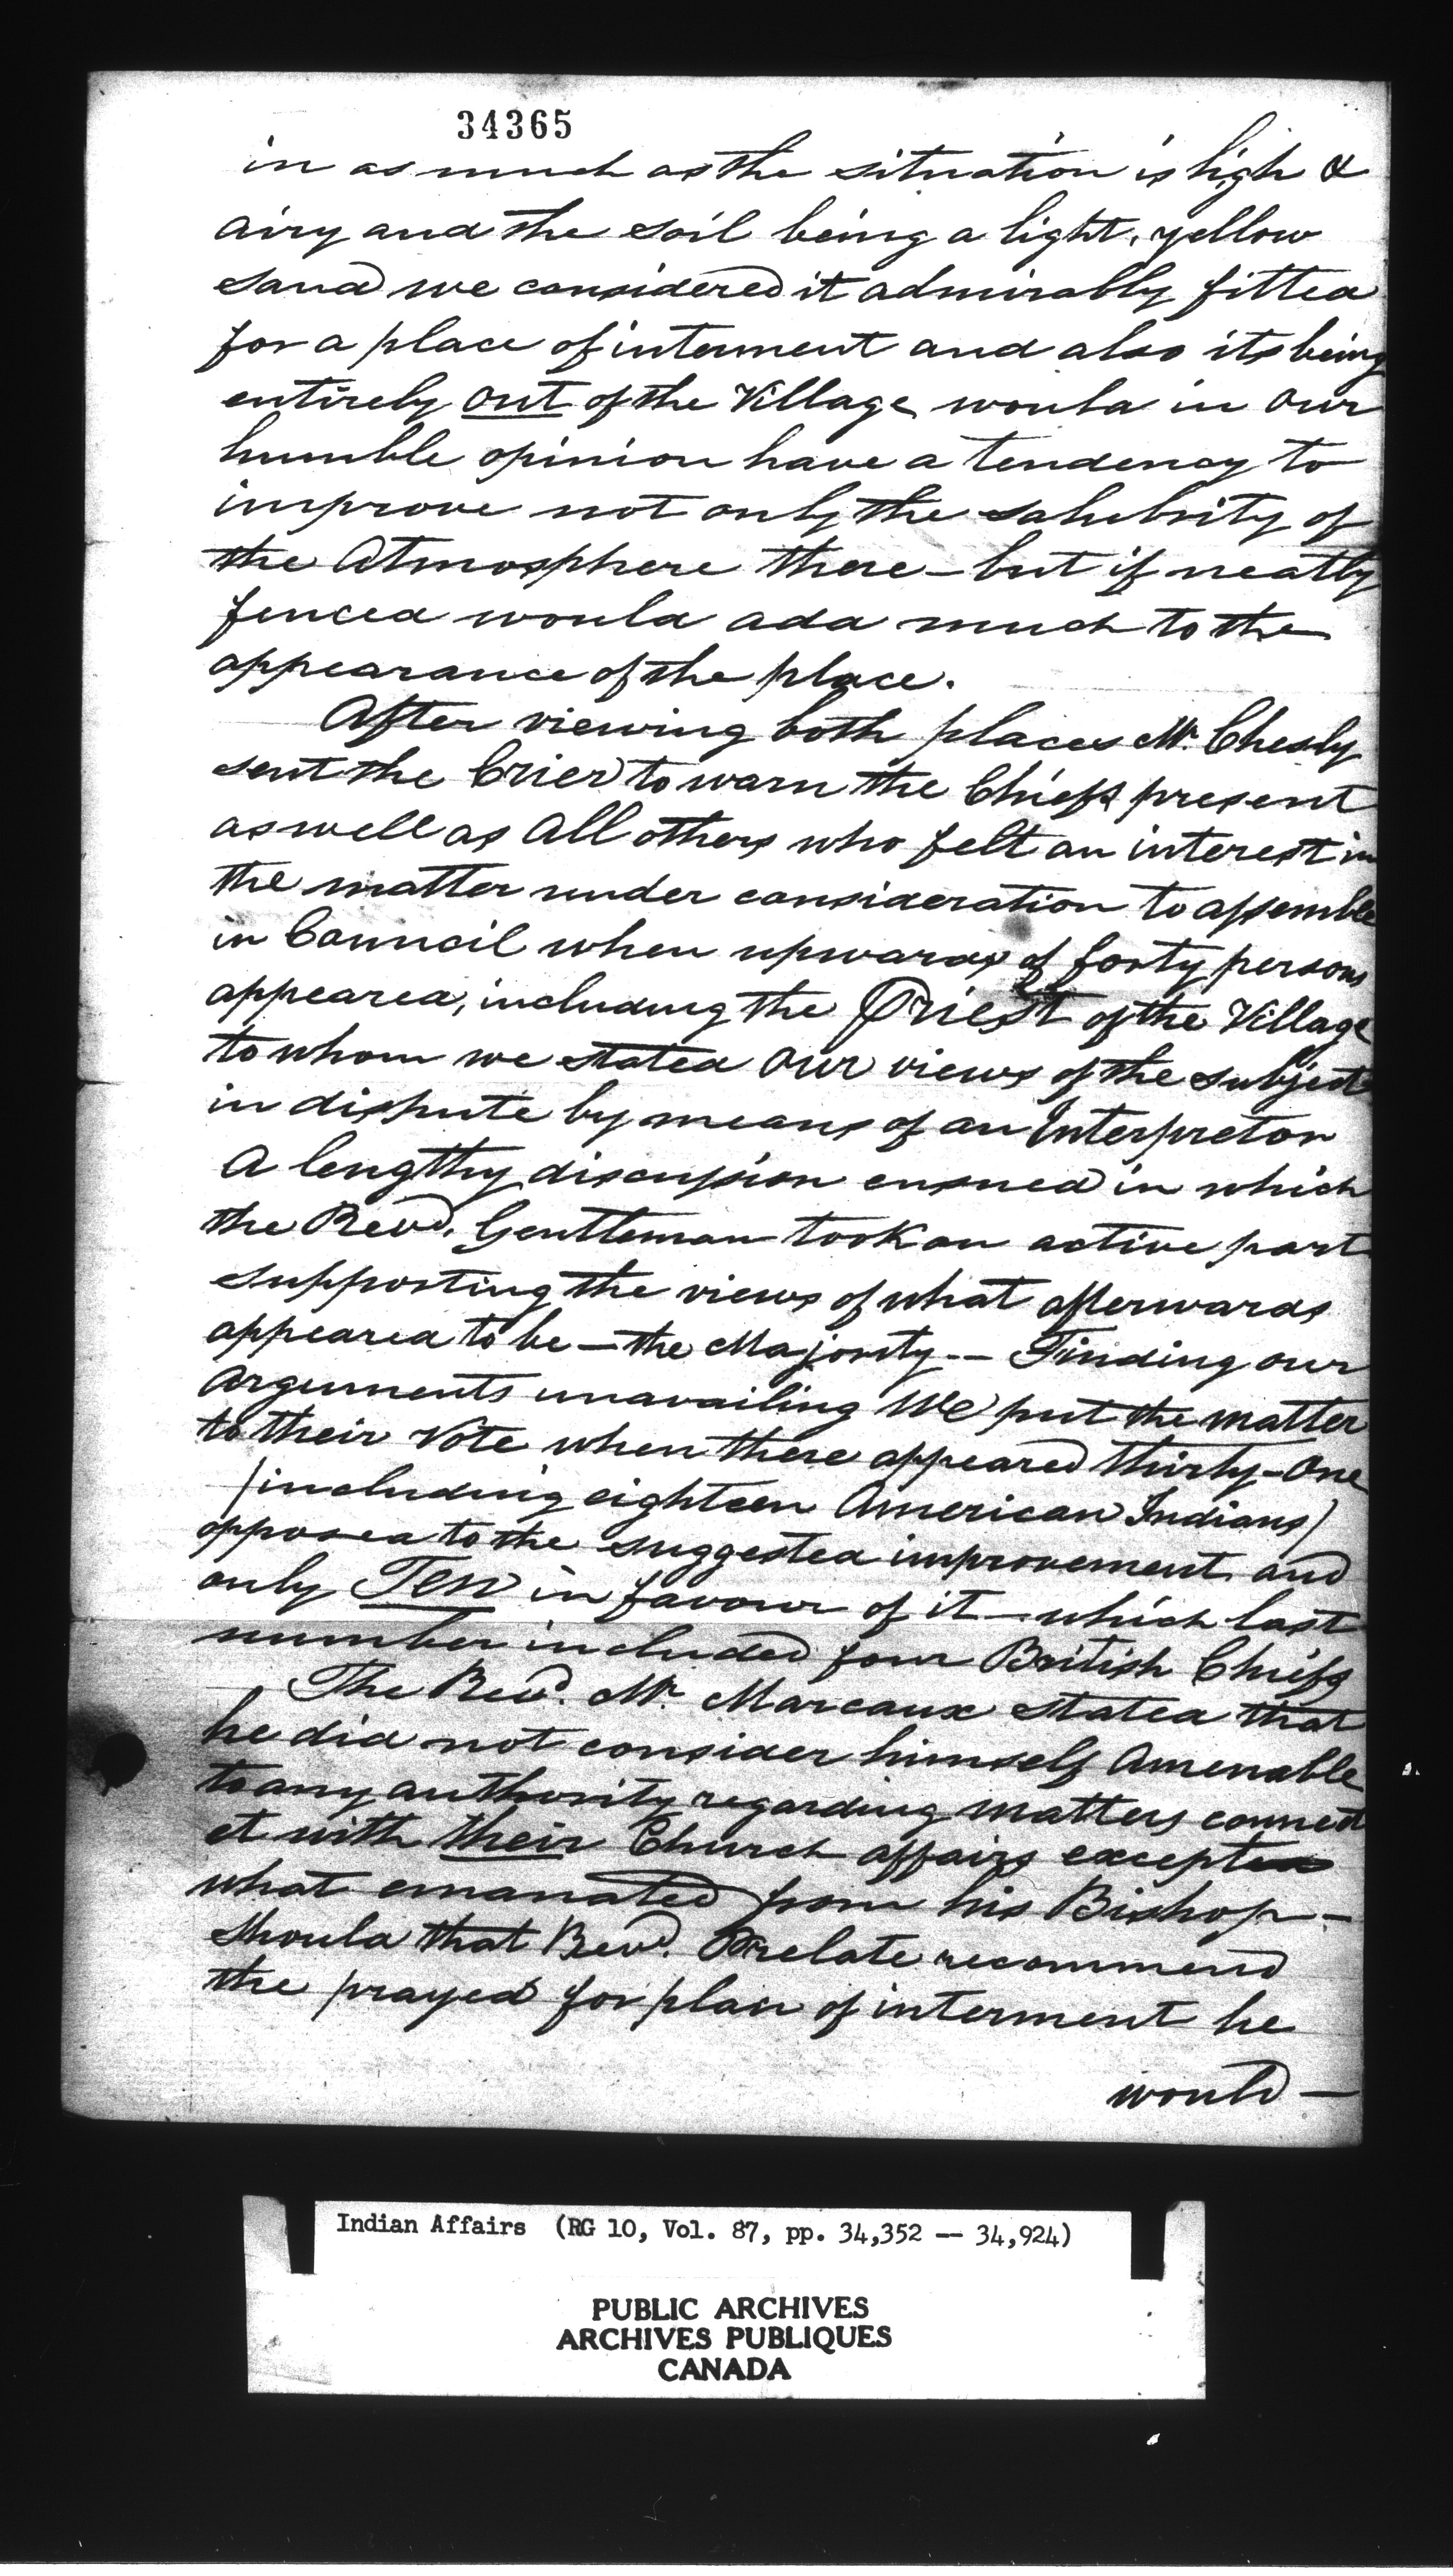 34365
in as much as the situation is high &
airy and the soil being a light, yellow
sand we considered it admirably fitted
for a place of interment and also its being
entirely out of the Village would in our
humble opinion have a tendency to
improve not only the salubrity of
the Atmosphere there - but if neatly
fenced would add much to the
appearance of the place.
After viewing both places Mr. Chesly
sent the Crier to warn the Chiefs present
as well as All others who felt an interest in
the matter under consideration to assemble
in Council when upwards of forty persons
appeared, including the Priest of the Village
to whom we stated our views of the subject
in dispute by means of an Interpretor
A lengthy discussion ensued in which
the Revd. Gentleman took an active part
supporting the views of what afterwards
appeared to be — the Majority -- Finding our
Arguments unavailing We put the matter
to their Vote when there appeared thirty-One
(including eighteen American Indians)
opposed to the suggested improvement and
only Ten in favour of it — which last
number included four British Chiefs
The Revd. Mr. Marcaux stated that
he did not consider himself Amenable
to any authority regarding matters connect
et with their Church affairs except
what emanated from his Bishop -
Should that Revd. Prelate recommend
the prayed for place of interment he
would —
Indian Affairs (RG 10, Vol. 87, pp. 34,352 -- 34,924)
PUBLIC ARCHIVES
ARCHIVES PUBLIQUES
CANADA